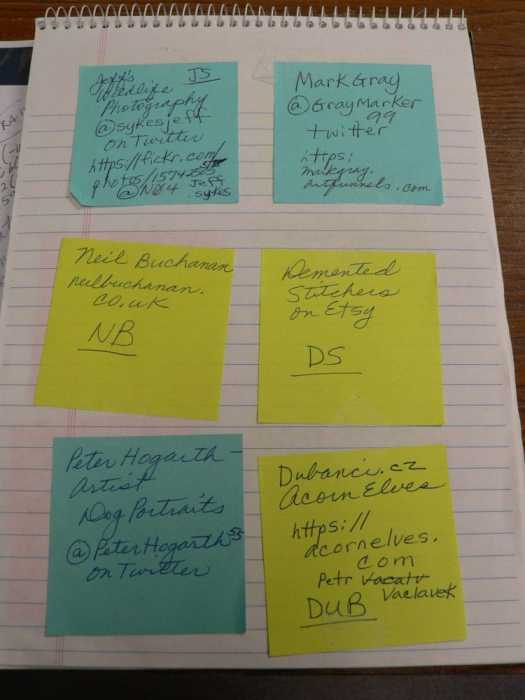 Jeff's JS
Wildlife
Photography
@sykesjeff
on Twitter
https://flickr.com/
photos/
@N04 Jeff
sykes
Mark Gray
@GrayMarker
99
twitter
https:
markgray.
artfunnels.com
Neil Buchanan
neilbuchanan.
co.uk
NB
Demented
Stitchers
on Etsy
DS
Peter Hogarth -
Artist
Dog Portraits
@PeterHogarth55
on Twitter
Dubanci.cz
Acorn Elves
https://
acornelves.
com
Petr Vacatv
Vaclavek
DUB